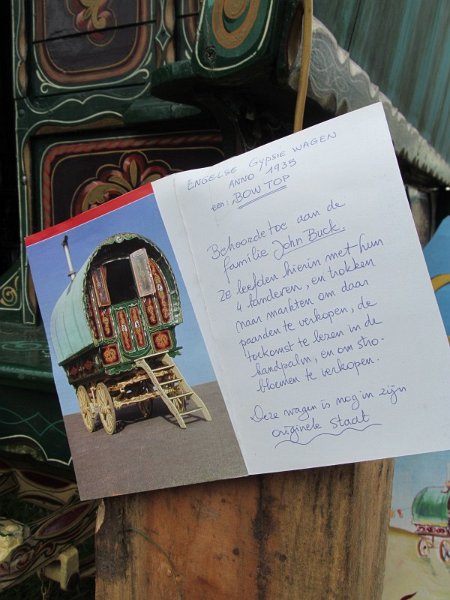 ENGELSE Gypsie WAGEN
ANNO 1935
een: BOW TOP
Behoorde toe aan de
familie John Buck.
ze leefden hierin met hun
4 kinderen, en trokken
naar markten om daar
paarden te verkopen, de
toekomst te lezen in de
handpalm, en om stro-
bloemen te verkopen.
Deze wagen is nog in zijn
originele staat